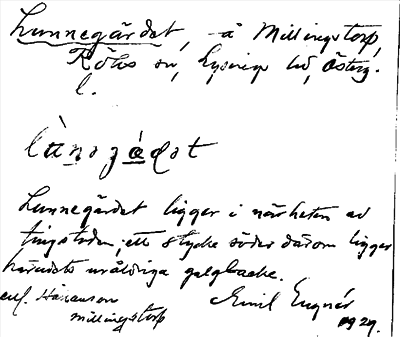 Lunnegärdet, å Millingstorp,
Röks sn, Lysings hd, Österg.
l.
Lunnegärdet ligger i närheten av
tingsteden, ett stycke söder därom ligger
häradets uråldriga galgbacke.
enl. Håkanson
Millingstorp
Emil Engnér
1929.